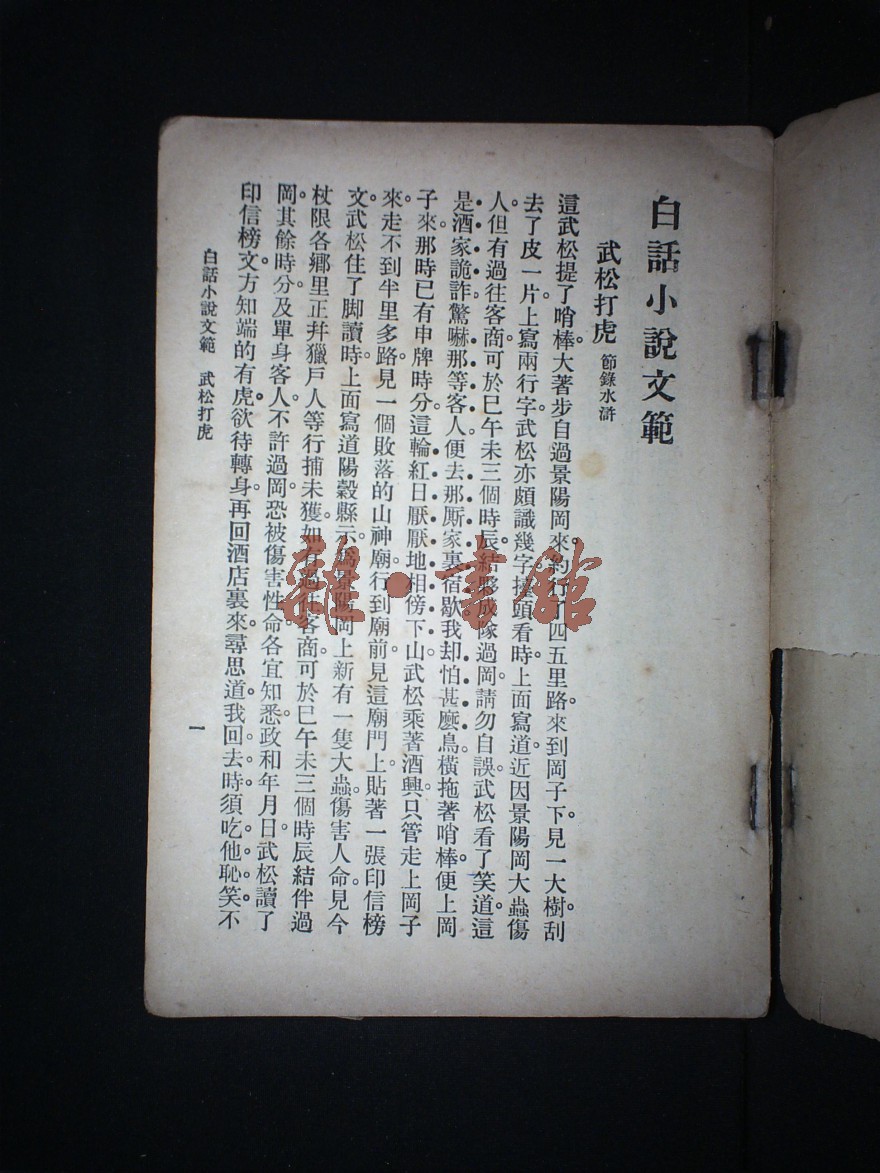 白話小說文範
武松打虎 節錄水滸
這武松提了哨棒大著步自過景陽岡來約行了四五里路來到岡子下見一大樹刮
去了皮一片上寫兩行字武松亦頗識幾字擡頭看時上面寫道近因景陽岡大蟲傷
人但有過往客商可於巳午未三個時辰結夥成隊過岡請勿自誤武松看了笑道這
是酒家詭詐驚嚇那等客人便去那厮家裏宿歇我却怕甚麽鳥橫拖著哨棒便上岡
子來那時已有申牌時分這輪紅日厭厭地相傍下山武松乘著酒興只管走上岡子
來走不到半里多路見一個敗落的山神廟行到廟前見這廟門上貼著一張印信榜
文武松住了脚讀時上面寫道陽穀縣示爲景陽岡上新有一隻大蟲傷害人命見今
杖限各鄉里正幷獵戶人等行捕未獲如有過往客商可於巳午未三個時辰結伴過
岡其餘時分及單身客人不許過岡恐被傷害性命各宜知悉政和年月日武松讀了
印信榜文方知端的有虎欲待轉身再回酒店裏來尋思道我回去時須吃他恥笑不
白話小說文範 武松打虎
一
雜·書館